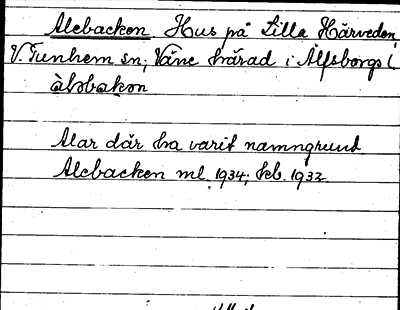 Alebacken Hus på Lilla Härveden,
V. Tunhem sn; Väne härad i Älfsborgs l.
àləbakən
Alar där ha varit namngrund
Alebacken ml. 1934; kb. 1932.